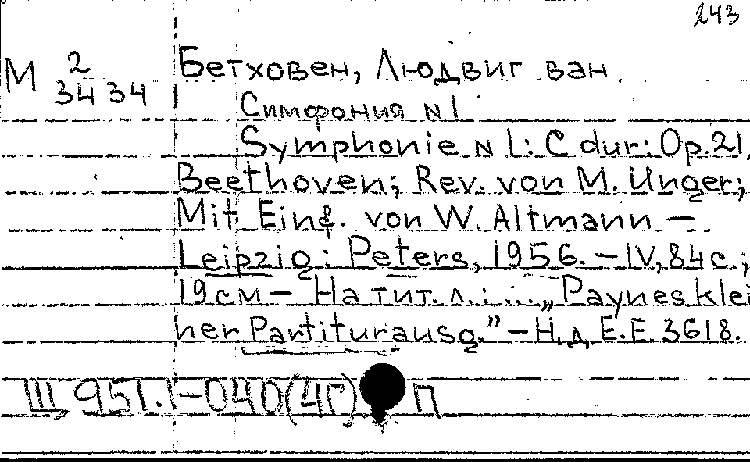 243
М 2 Бетховен, Людвиг ван.
3434
Симфония N1
Symphonie N 1: C dur: Op.21,
Beethoven; Rev. von M. Unger;
Mit Einf. von W. Altmann –
Leipzig: Peters, 1956. – IV, 84 с.;
19 см – На тит. л.: ... „Paynes klei
ner Partiturausg.” – Н. д. E.E. 3618.
III 951.1-040(4Г) П